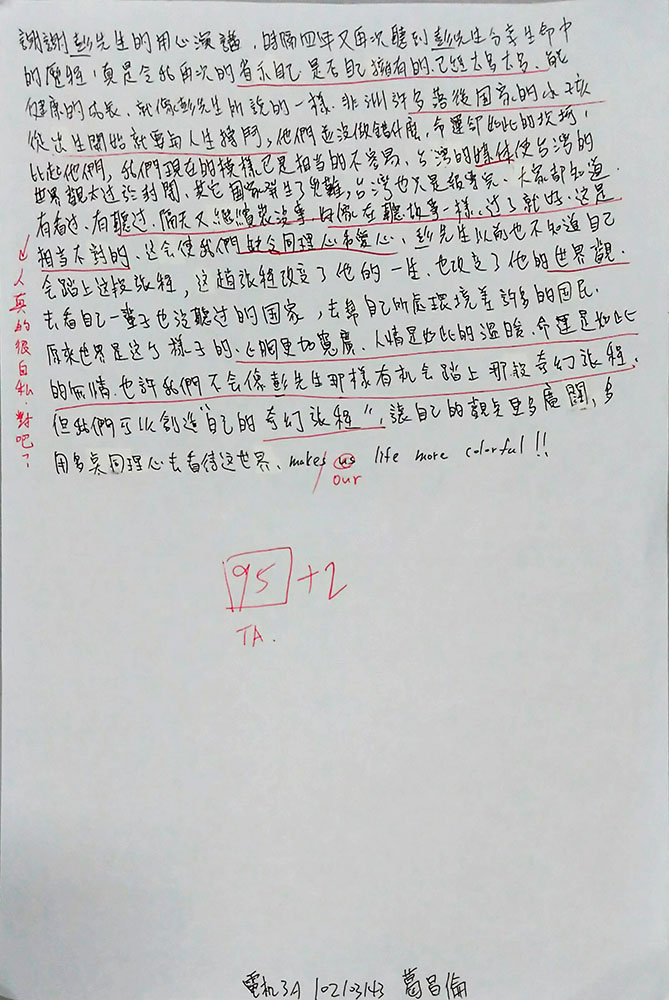 謝謝彭先生的用心演講,時隔四年又再次聽到彭先生分享生命中
的歷程,真是令我再次的省示自己是否自己擁有的已經太多太多,能
健康的成長,就像彭先生所說的一樣,非洲許多落後国家的小孩
從出生開始就要与人生搏鬥,他們並沒做錯什麼,命運卻如此的坎坷,
比起他們,我們現在的模樣已是相当的不容易,台灣的媒体使台灣的
世界觀太过於封閉,其它國家發生了災難,台灣也只是報導完,大家都知道
有看过、有聽过,隔天又継續裝沒事,好像在聽故事一樣,过了就好,这是
相当不對的,这会使我們缺合同理心和爱心,彭先生以前也不知道自己
会踏上这段旅程,这趟旅程改变了他的一生,也改变了他的世界觀,
去看自己一輩子也沒聽过的国家,去幫自己所處環境差許多的国民,
原來世界是这个樣子的,心胸更加寬廣,人情是如此的溫暖,命運是如此
的無情,也許我們不会像彭先生那樣有机会踏上那段奇幻旅程,
但我們可以創造"自己的奇幻旅程",讓自己的觀点更多廣闊,多
用多点同理心去看待这世界,makes us life more colorful!!
our
人真的很自私,對吧?
95+2
TA.
電机3A 102103143 葛昌倫